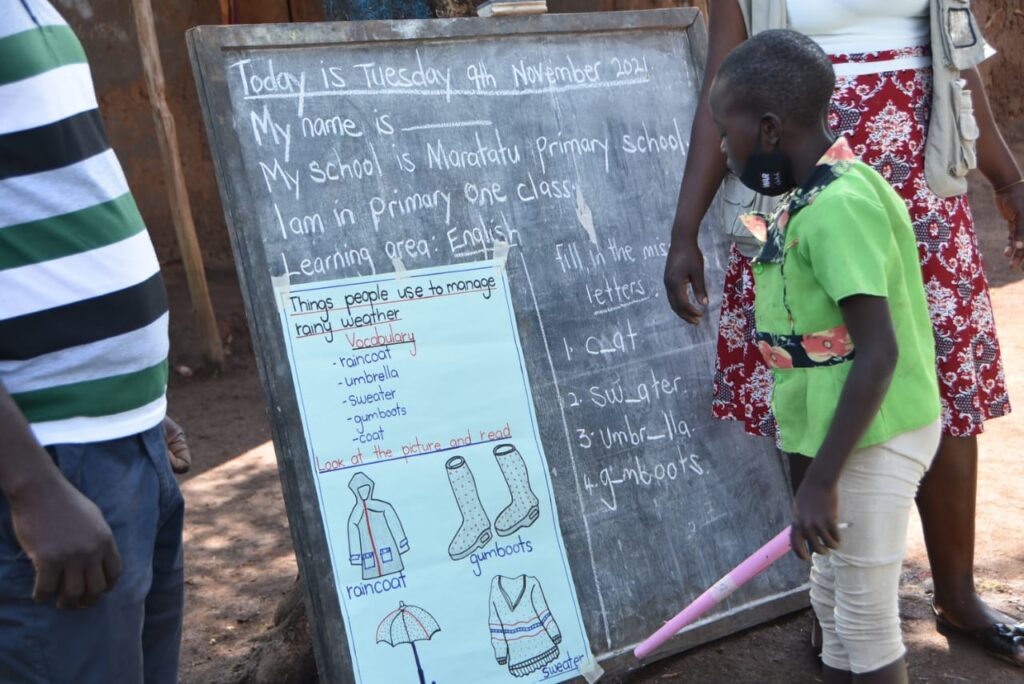 Today is Tuesday 9th November 2021.
My name is ________
My school is Maratatu primary school.
I am in primary One class.
Learning area: English
Things people use to manage
rainy weather
Vocabulary
- raincoat
- umbrella
- sweater
- gumboots
- coat
Look at the picture and read
raincoat
gumboots
sweater
Fill in the mis
letters.
1. c_at
2. sw_ater.
3. umbr_lla.
4. g_mboots.